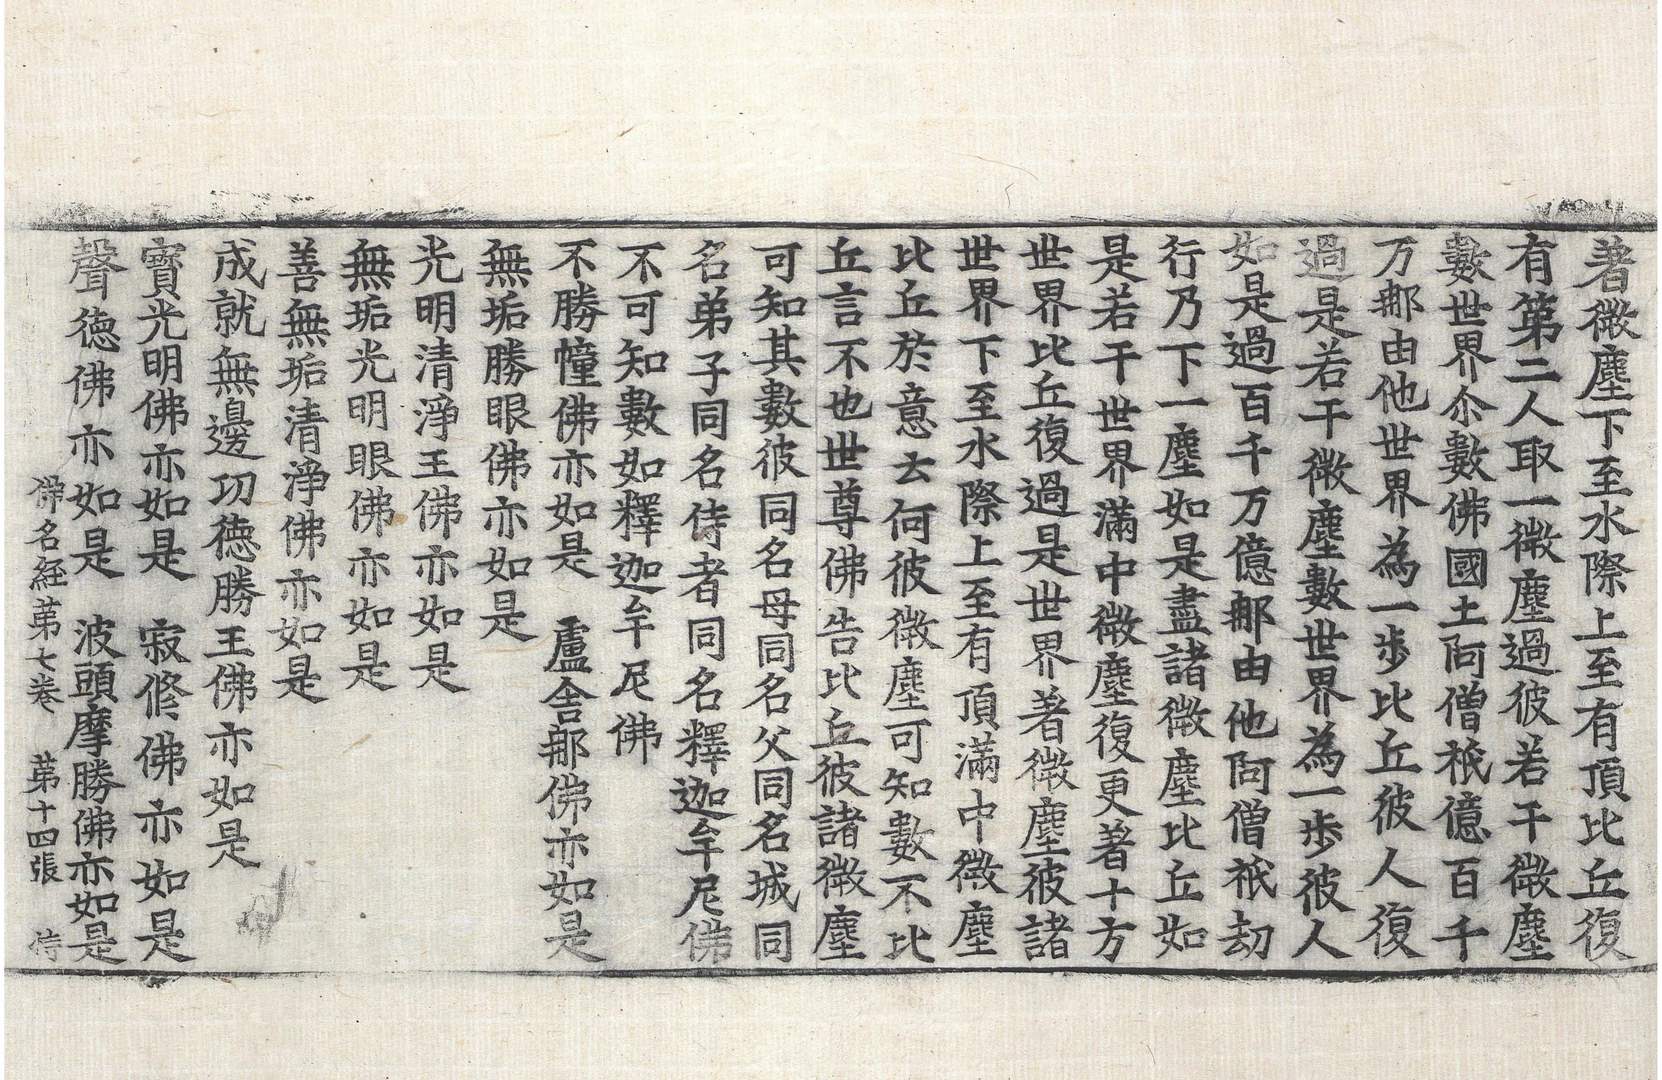 著微塵下至水際上至有頂比丘復
有第二人取一微塵過彼若干微塵
數世界尒數佛國土阿僧祇億百千
万那由他世界為一步比丘彼人復
過是若干微塵數世界為一步彼人
如是過百千万億那由他阿僧祇劫
行乃下一塵如是盡諸微塵比丘如
是若干世界滿中微塵復更著十方
世界比丘復過是世界著微塵彼諸
世界下至水際上至有頂滿中微塵
比丘於意云何彼微塵可知數不比
丘言不也世尊佛告比丘彼諸微塵
可知其數彼同名母同名父同名城同
名弟子同名侍者同名釋迦牟尼佛
不可知數如釋迦牟尼佛
不勝幢佛亦如是　盧舍那佛亦如是
無垢勝眼佛亦如是
光明清淨王佛亦如是
無垢光明眼佛亦如是
善無垢清淨佛亦如是
成就無邊功德勝王佛亦如是
寶光明佛亦如是　寂修佛亦如是
聲德佛亦如是　波頭摩勝佛亦如是
佛名經第七卷　第十四張　侍